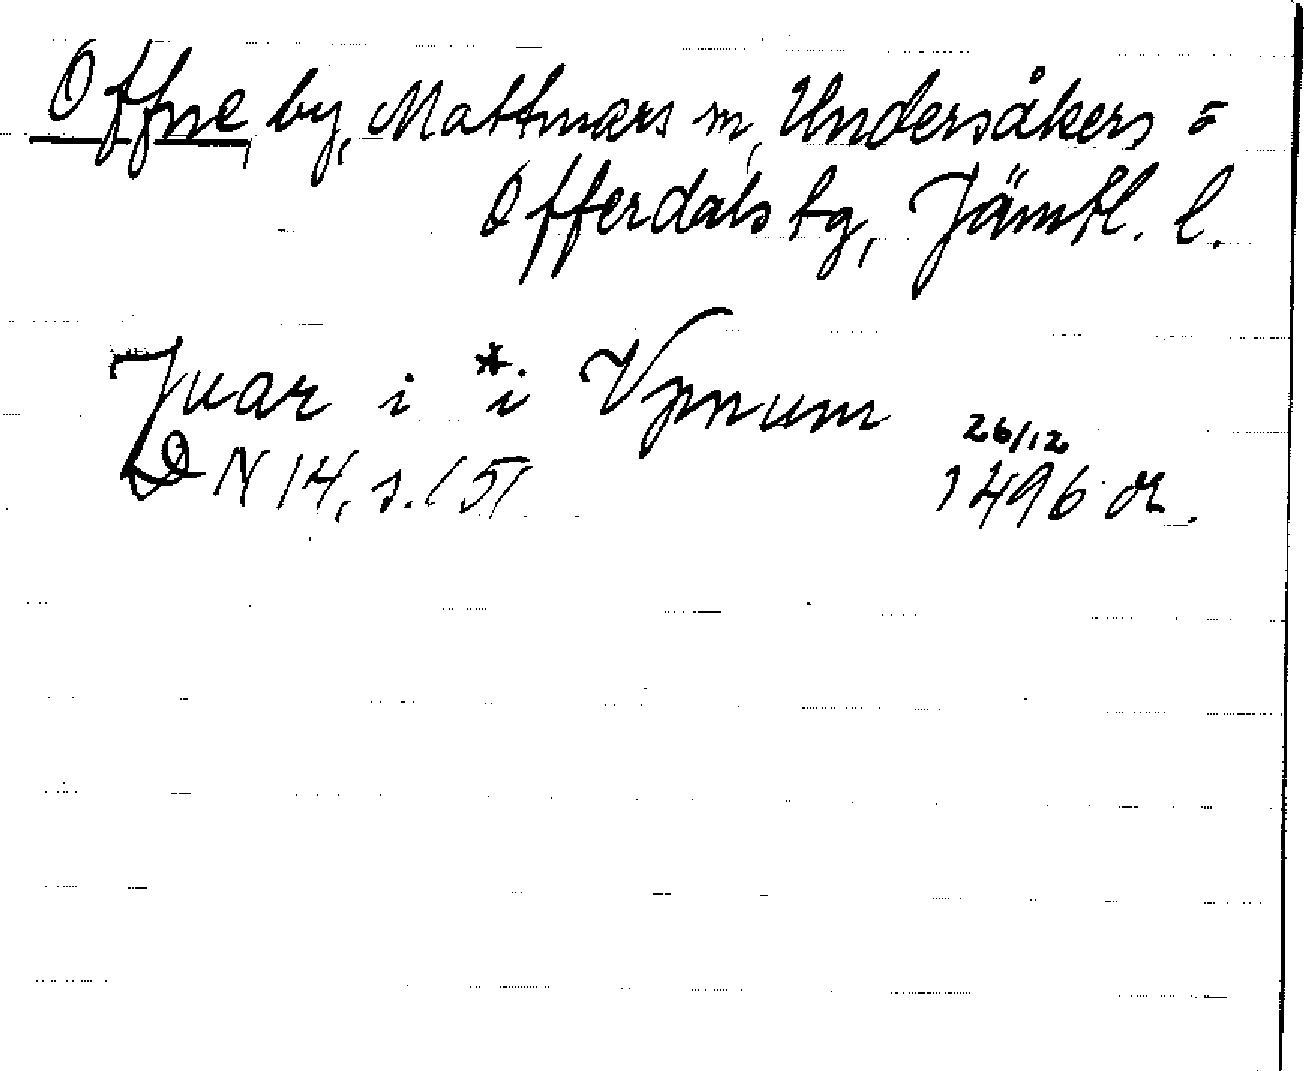 Offne by, Mattmars sn, Undersåkers =
Offerdals tg, Jämtl. l.
Juar i * i Vpnum
26/12
DN 14, s. 151 1496 or.